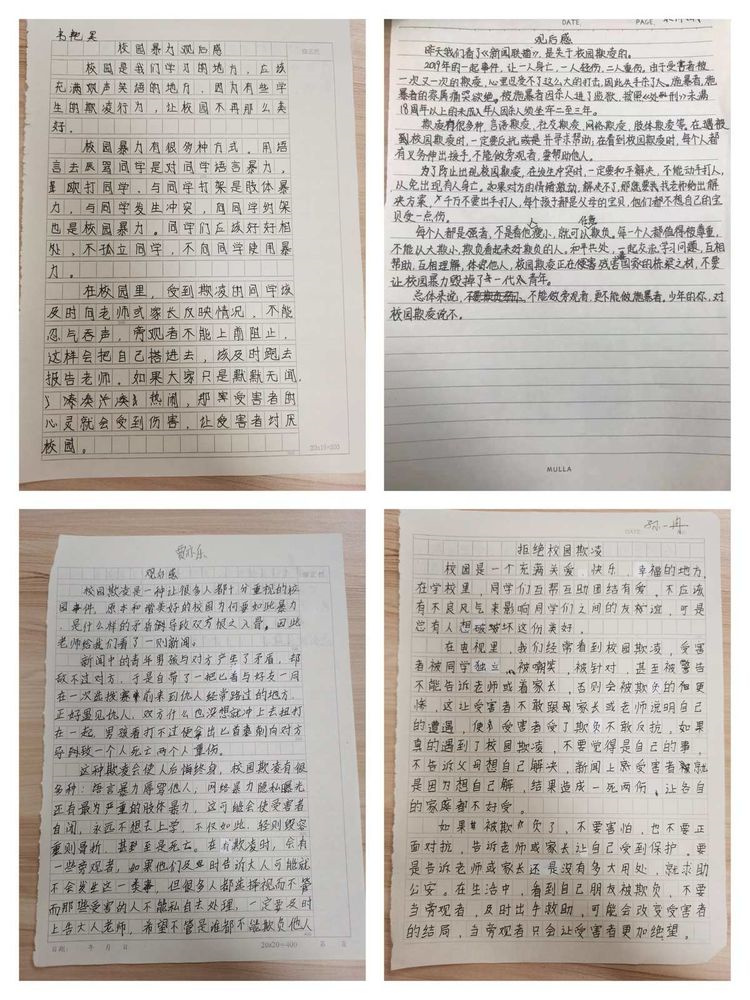 校园暴力观后感
校园是我们学习的地方，应该
充满欢声笑语的地方，因为有些学
生的欺凌行为，让校园不再那么美
好。
校园暴力有很多种方式，用语
言去辱骂同学是对同学语言暴力，
跟打同学、与同学打架是肢体暴
力，与同学发生冲突，向同学约架
也是校园暴力。同学们应该好好相
处，不孤立同学，不向同学使用暴
力。
在校园里，受到欺凌出同学该
及时向老师或家长反映情况，不能
忍气吞声，旁观者不能上前阻止，
这样会把自己搭进去，该及时跑去
报告老师。如果大家只是默默无闻，
凑热闹，那受害者的
心灵就会受到伤害，让受害者讨厌
校园。
20x15=300
DATE.
PAGE.
观后感
昨天我们看了《新闻联播》，是关于校园欺凌的。
2019年的一起事件，让一人身亡，一人轻伤，二人重伤。由于受害者被
一次又一次的欺凌，心里也受不了这么大的打击，因此失手杀了人。施暴者，施
暴者的家属痛哭欲绝。被施暴者因杀人进了监狱，按照《处刑》未满
18周年以上的未成人年人因杀人须坐牢二至三年。
欺凌有很多种，言语欺凌，社交欺凌，网络欺凌，肢体欺凌等。在遇被
校园欺凌时，一定要反抗，或是并寻求帮助，在看到校园欺凌时，每个人都
有义务伸出援手，不能做旁观者，要帮助他人。
为了防止出现校园欺凌，在发生冲突时，一定要和平解决，不能动手打人，
以免出现有人身亡。如果对方的情绪激动，解决不了，那就要找老师给出解
决方案，千万不要出手打人，每个孩子都是父母的宝贝，他们都不想自己的宝
贝受一点伤。
人 任意
每个人都是强者，不是看他瘦小，就可以欺负。每一个人都值得被尊重，
不能以大欺小，欺负看起来好欺负的人。和平共处，一起交流学习问题，互相
帮助，互相理解，体谅他人，校园欺凌正在侵害残害国家的栋梁之材，不要
让校园暴力毁掉了一代人青年。
总体来说，不能做旁观者，更不能做施暴者。少年的你，对
校园欺凌说不。
MULLA
观后感
校园欺凌是一种让很多人都十分重视的校
园事件，原本和谐美好的校园为何要如此暴力，
是什么样的矛盾导致双方恨之入骨。因此
老师给我们看了一则新闻。
新闻中的青年男孩与对方产生了矛盾，却
敌不过对方，于是自带了一把匕首与好友一同
在一次选拔赛前来到仇人经常路过的地方，
正好遇见仇人，双方什么也没想就冲上去扭打
在一起，男孩看打不过便拿出匕首刺向对方
导致一个人死亡两个人重伤。
这种欺凌会使人后悔终身，校园欺凌有很
多种：语言暴力辱骂他人，网络暴力隐私曝光
还有最为严重的肢体暴力，这可能会使受害者
自闭，永远不想去上学，不仅如此，轻则毁容
重则骨折，甚至是死亡。在欺凌时，会有
一些旁观者，如果他们及时告诉大人可能就
不会发生这一类事，但很多人都选择视而不管
而那些受害的人不能私自去处理，一定要及时
上告大人老师，希望不管是谁都不能欺负他人
日期： 年 月 日
20x20=400
第 页
DATE
孙一冉
拒绝校园欺凌
校园是一个充满关爱、快乐、幸福的地方，
在学校里，同学们互帮互助团结有爱，不应该
有不良风气来影响同学们之间的友好谊，可是
总有人想破坏这份美好。
在电视里，我们经常看到校园欺凌，受害
者被同学独立、被嘲笑，被针对，甚至被警告
不能告诉老师或着家长，否则会被欺负的更
惨，这让受害者不敢跟母家长或老师说明自己
的遭遇，使受害者受了欺负不敢反抗，如果
真的遇到了校园欺凌，不要觉得是自己的事，
不告诉父母想自己解决，新闻上受害者就
是因为想自己解，结果造成一死两伤，让各自
的家庭都不好受。
如果被欺负了，不要害怕，也不要正
面对抗，告诉老师或家长让自己受到保护，要
是告诉老师或家长还是没有多大用处，就求助
公安。在生活中，看到自己朋友被欺负，不要
当旁观者，及时出手救助，可能会改变受害者
的结局，当旁观者只会让受害者更加绝望。